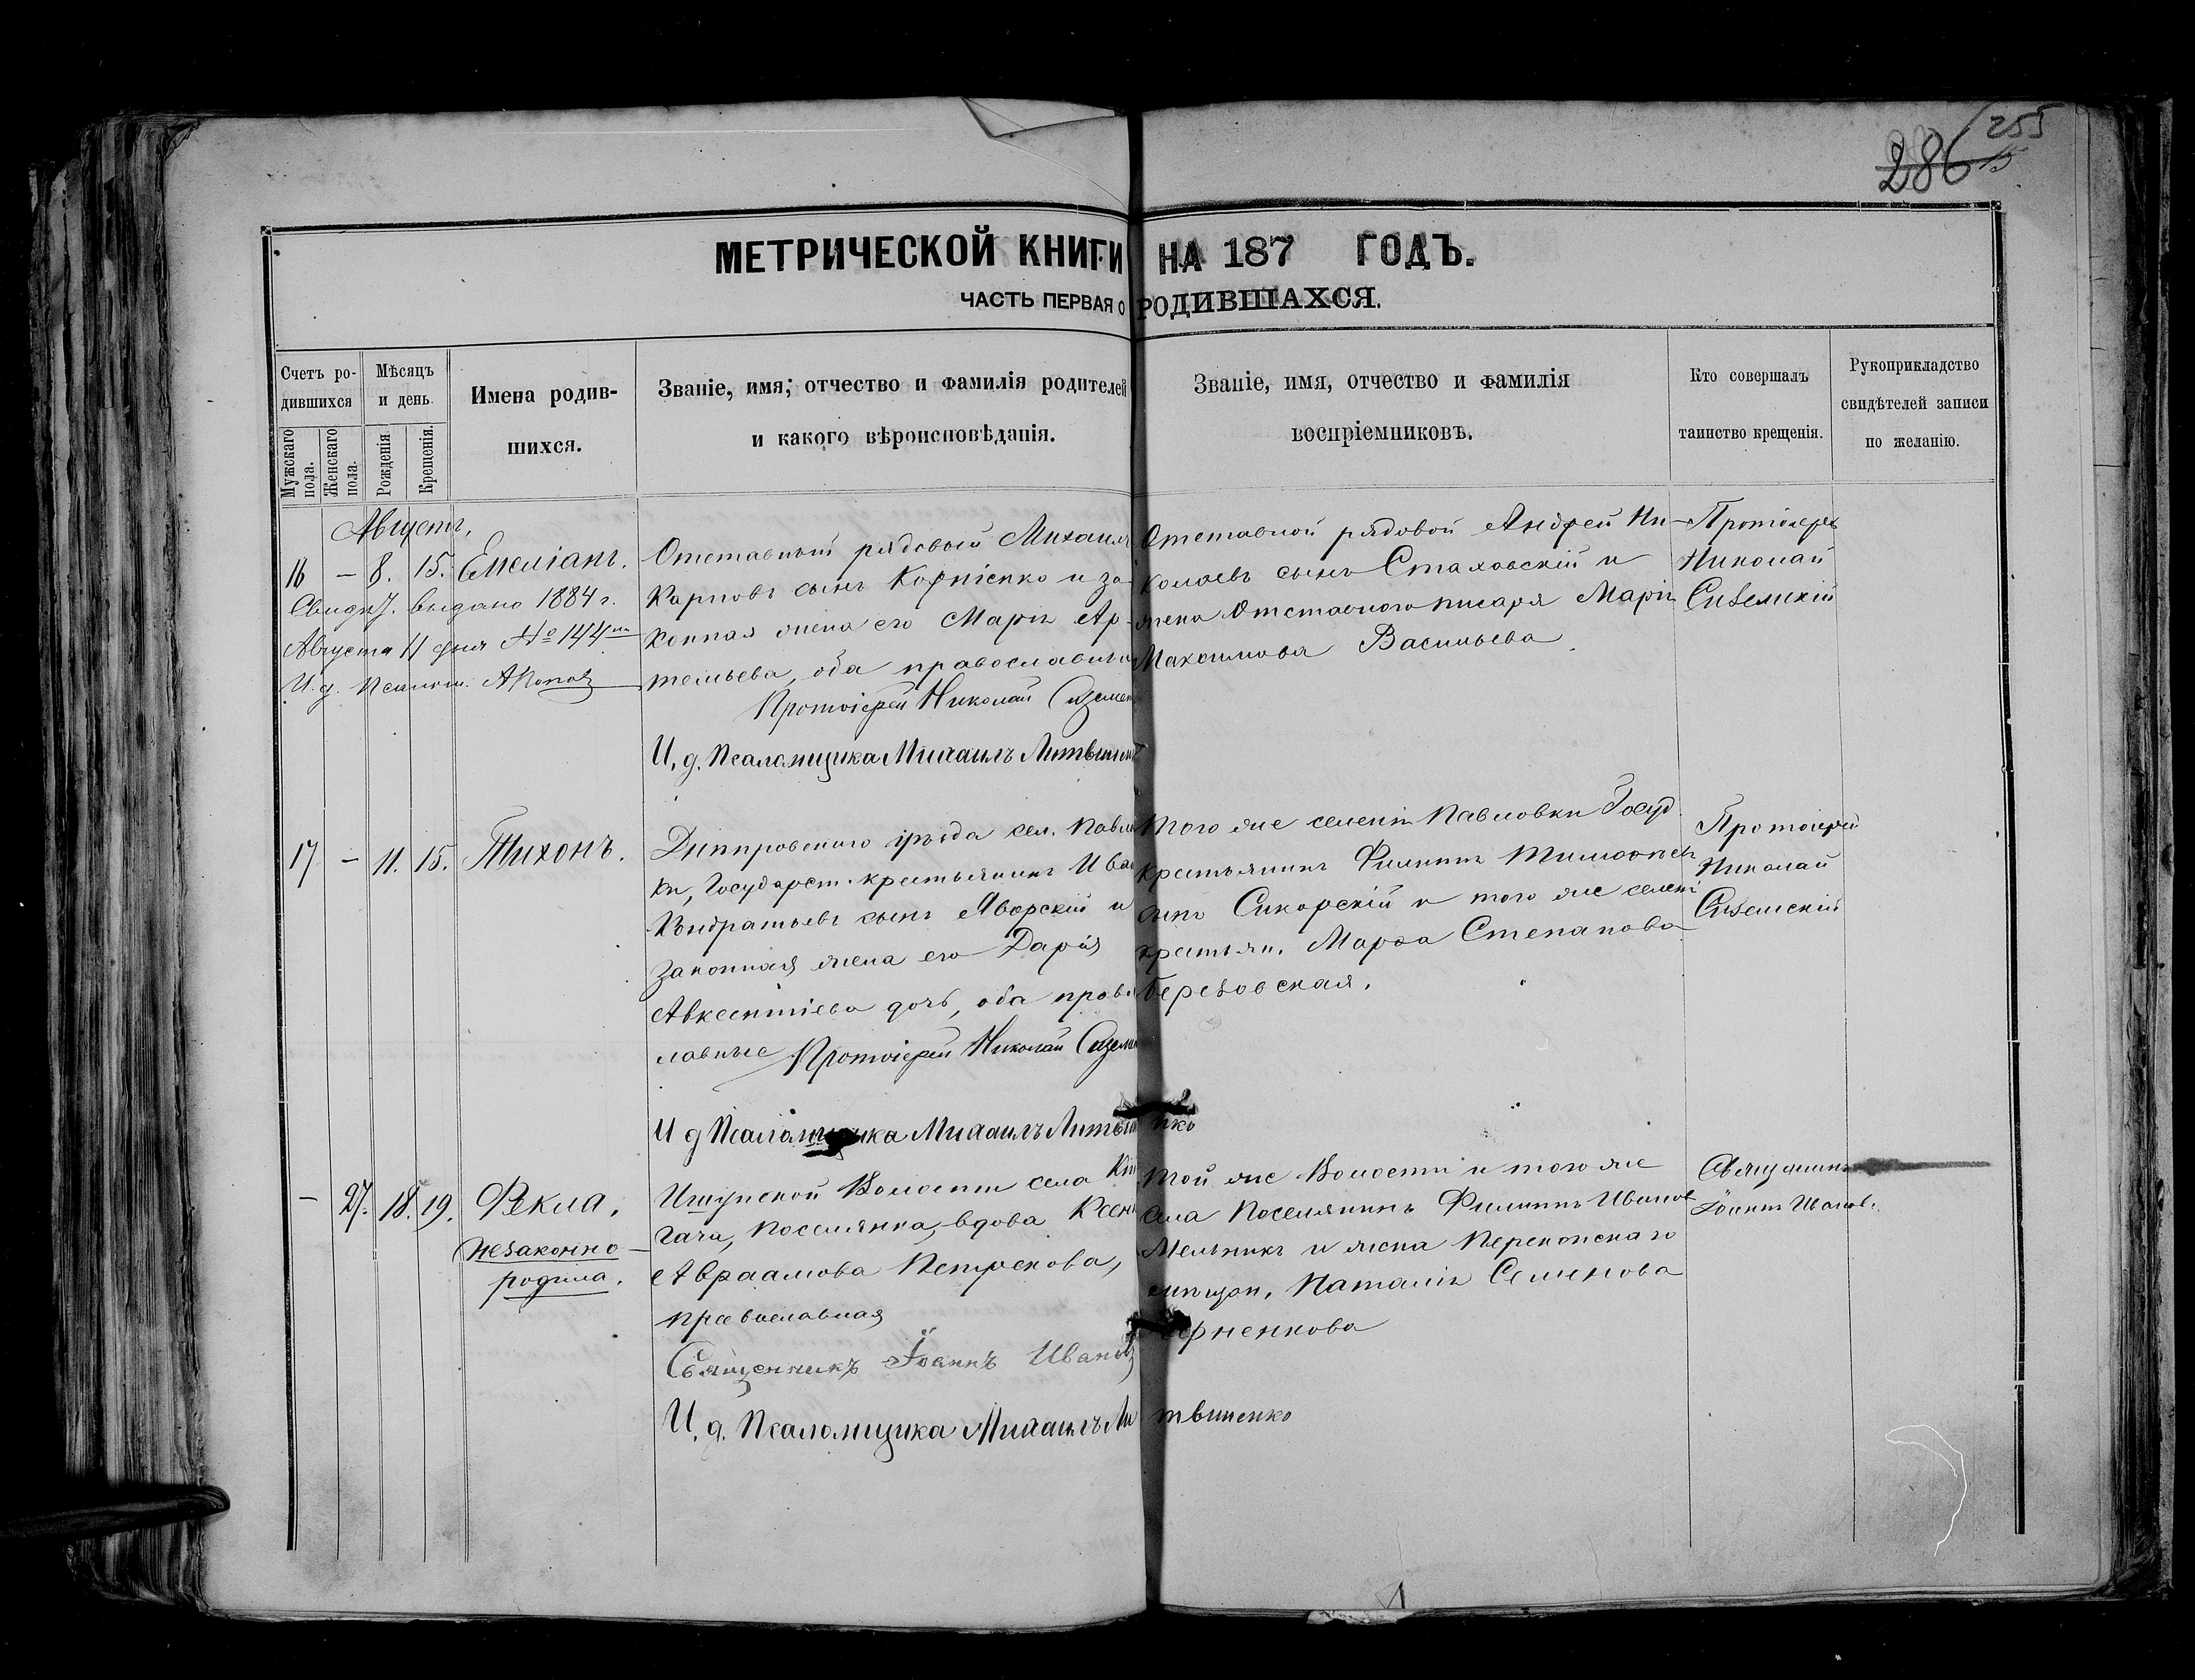 286 255
15
МЕТРИЧЕСКОЙ КНИГИ НА 187 ГОДЪ.
ЧАСТЬ ПЕРВАЯ О РОДИВШАХСЯ.
Счетъ ро-
дившихся
Мужскаго пола.
Женскаго пола.
Мѣсяцъ
и день
Рожденія
Крещенія.
Имена родив-
шихся.
Званіе, имя, отчество и фамилія родителей
и какого вѣроисповѣданія.
Званіе, имя, отчество и фамилія
воспріемниковъ.
Кто совершалъ
таинство крещенія.
Рукоприкладство
свидѣтелей записи
по желанію.
Августъ,
16 — 8. 15. Емеліанъ.
выдано 1884 г.
Августа 11 дня № 144
И. д. Псалом. АПопов
Отставный рядовый Михаил
Карповъ сынъ Корніенко и за-
конная жена его Марія Ар-
темьева, оба православныи
Протоіерей Николай
И. д. Псаломщика Михаилъ Литвинен
Отставной рядовой Андрей Ни-
колаевъ сынъ Стаховскій и
жена Отставного писаря Марія
Максимова Васильева.
Протоіерей
Николай
17 — 11. 15. Тихонъ.
Днѣпровскаго уѣзда сел. Павлов
ки, Государст. крестьянинъ Иван
Кондратьевъ сынъ Яворскій и
законная жена его Дарія
Авксентіева дочь, оба право
лавные Протоіерей Николай
И д Псаломщика Михаилъ Литвиненко
Того же селенія Павловки Госуд.
крестьянинъ Филиппъ
сынъ Сикорскій и того же селені
крестьян. Марѳа Степанова
Березовская.
Протоіерей
Николай
— 27. 18. 19. Ѳекла,
незаконно-
родила.
Ишунской Волости села
гача, поселянка, вдова Ксен
Авраамова Петренкова,
православная
Священникъ Іоаннъ Ивановъ
И. д. Псаломщика Михаилъ Литвиненко
Той же Волости и того же
села Поселянинъ Филиппъ Иванов
Мельникъ и жена Перекопскаго
Наталія Семенова
Священникъ
Іоаннъ Иванов.